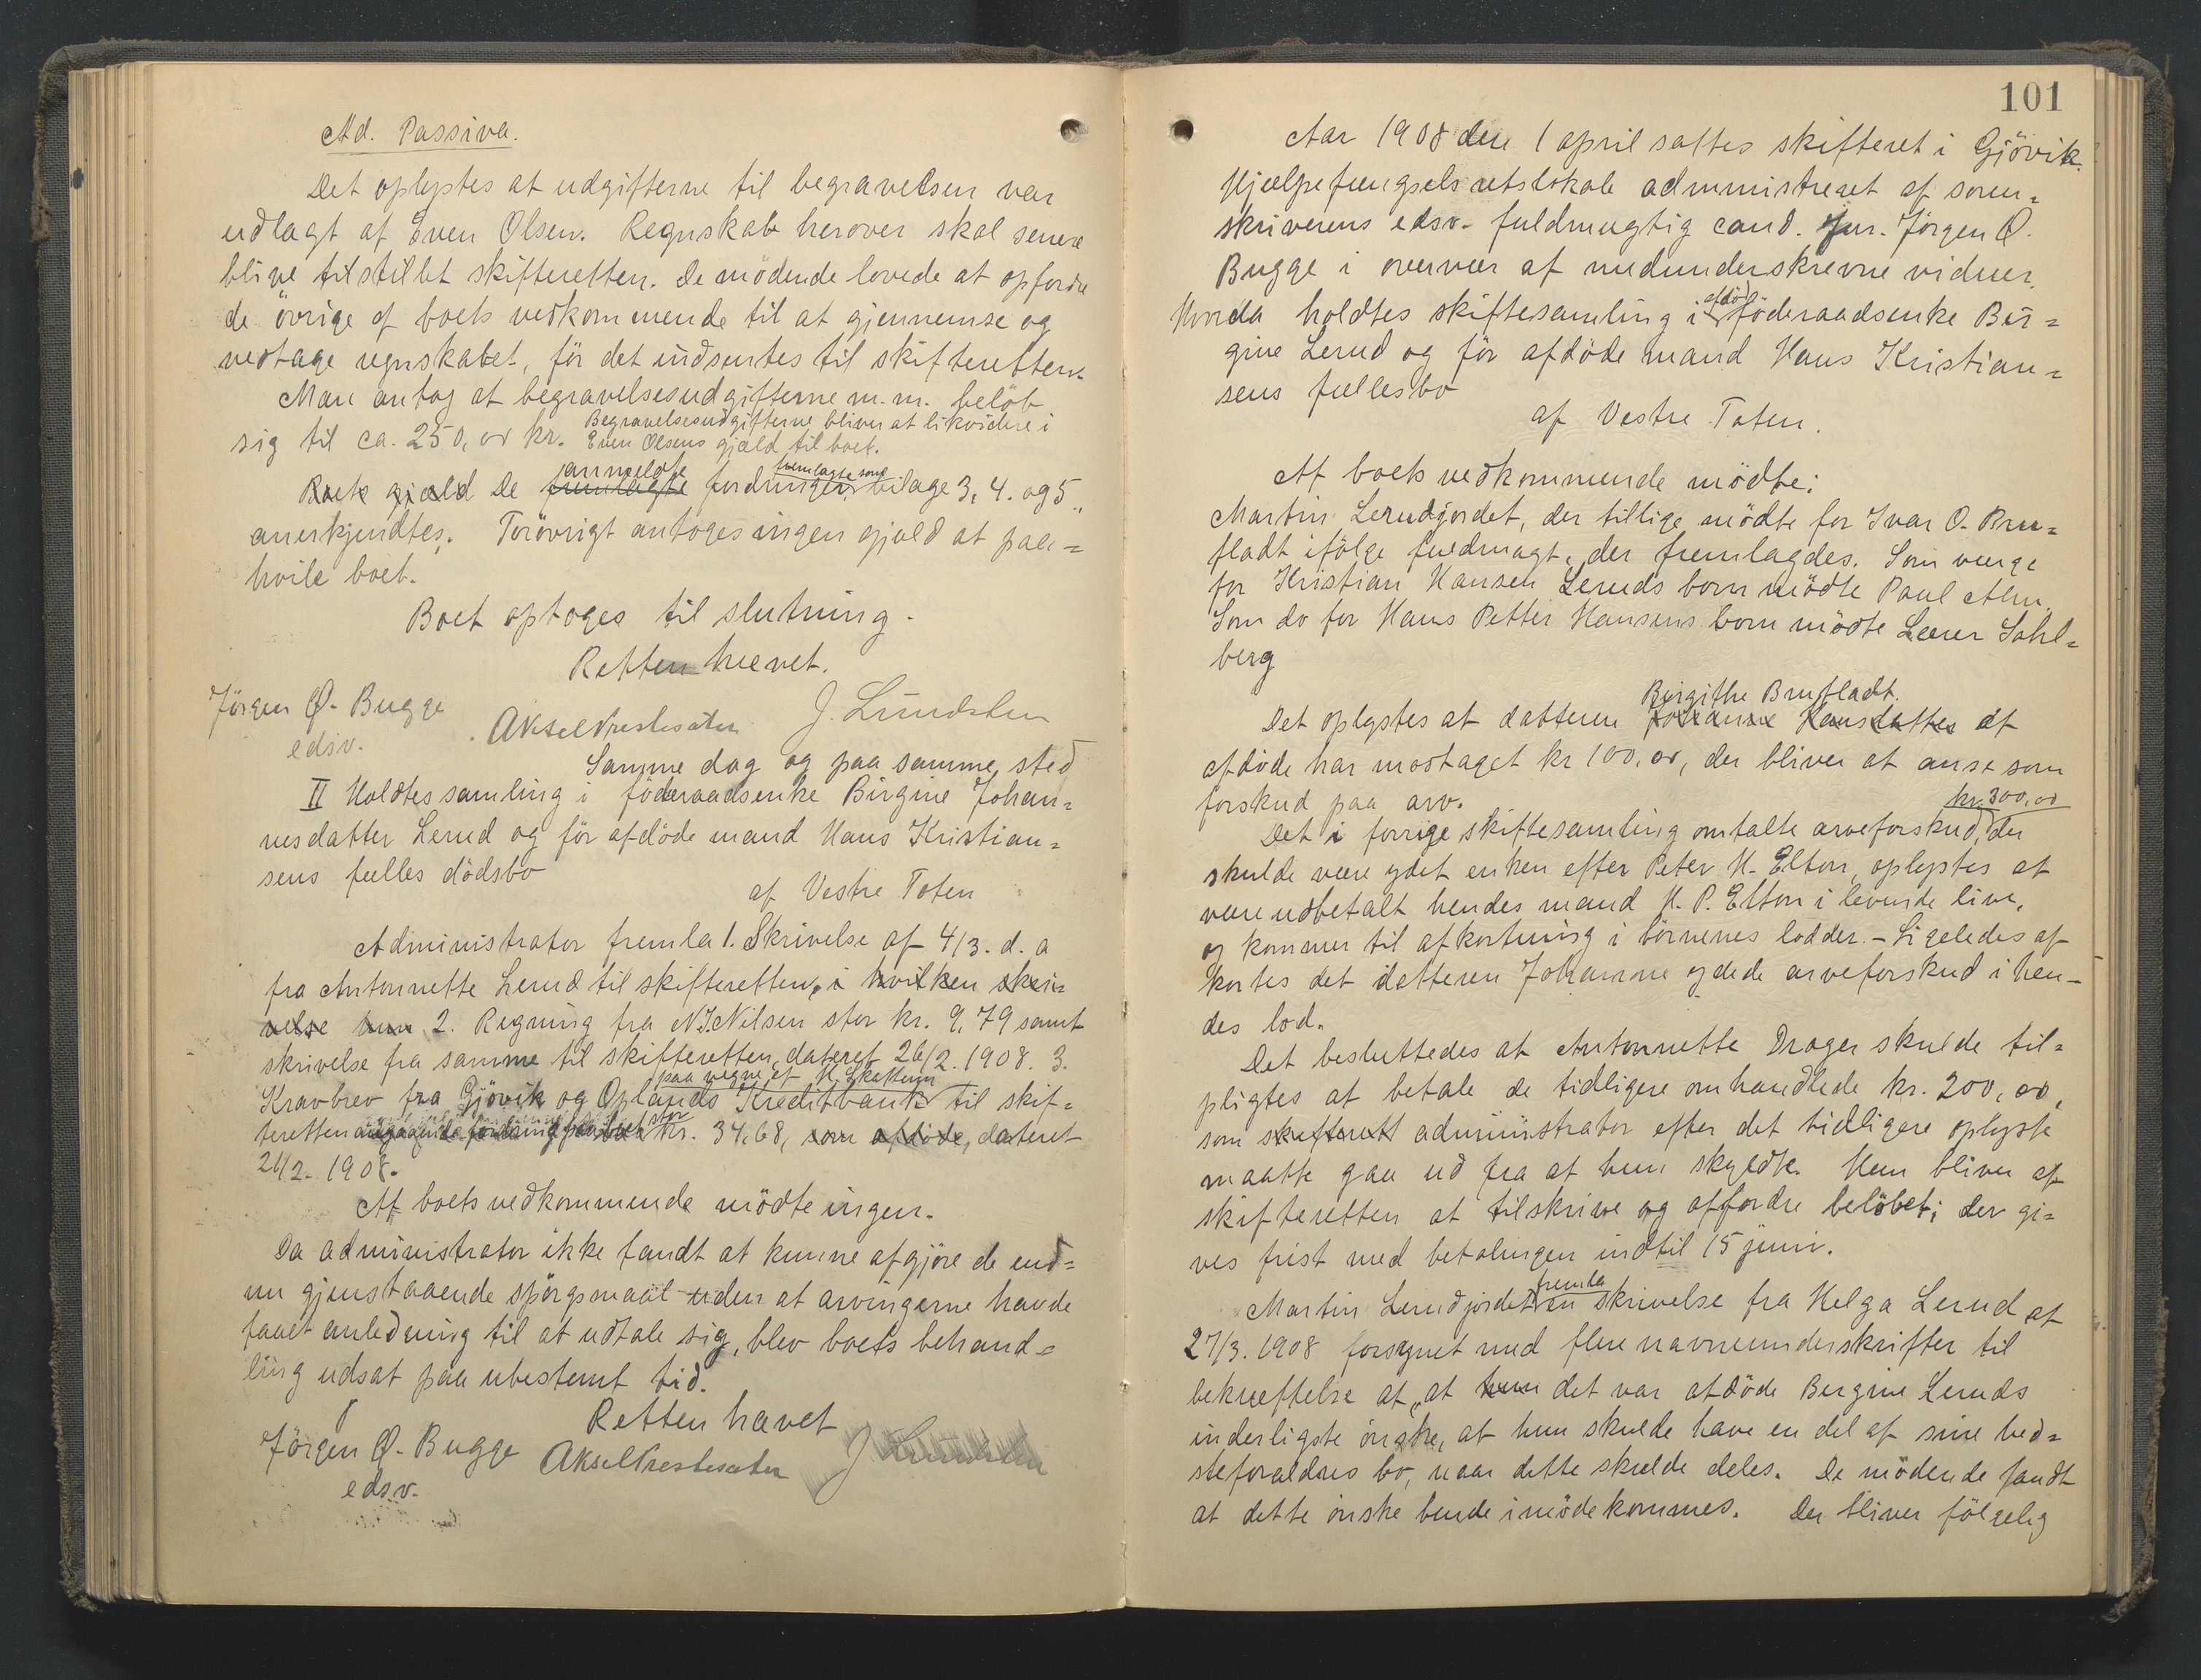 Ad. Passiva.
Det oplystes at udgifterne til begravelsen var
udlagt af Even Olsen. Regnskab herover skal senere
blive tilstillet skifteretten. De mödende lovede at opfordre
de övrige af boets vedkommende til at gjennemse og
vedtage regnskabet, för det indsendtes til skifteretten.
Man antog at begravelsesudgifterne m.m. belöb
sig til ca. 250,00 kr. Begravelsesudgifterne bliver at likvidere i
Even Olsens gjæld til boet.
Boets gjæld De fremlagte anmeldte fordringer fremlagte som bilage 3, 4. og 5
anerkjendtes. Forövrigt antoges ingen gjæld at paa=
hvile boet.
Boet optoges til slutning.
Retten hævet.
Jörgen Ø. Bugge
edsv.
Aksel Prestesæter
J. Lundsten
Samme dag og paa samme sted
II Holdtes samling i föderaadsenke Birgine Johan=
nesdatter Lerud og för afdöde mand Hans Kristian=
sens fælles dödsbo
af Vestre Toten
Administrator fremla 1. Skrivelse af 4/3. d. a
fra Antonnette Lerud til skifteretten, i hvilken skri=
velse hun 2. Regning fra N.J. Nilsen stor kr. 9,79 samt
skrivelse fra samme til skifteretten, dateret 26/2. 1908. 3.
Kravbrev fra Gjövik og Oplands Kreditbank paa vegne af H. Skattum til skif=
teretten angaaende fordring paa boet stor kr. 34,68, som afdöde, dateret
21/2. 1908.
Af boets vedkommende mödte ingen.
Da administrator ikke fandt at kunne afgjöre de end=
nu gjenstaaende spörgsmaal uden at arvingerne havde
faaet anledning til at udtale sig, blev boets behand=
ling udsat paa ubestemt tid.
Retten hævet
Jörgen Ø. Bugge
edsv.
Aksel Prestesæter
J Lundsten
101
Aar 1908 den 1 april sattes skifteret i Gjövik
Hjælpefængsels retslokale administreret af soren=
skriverens edsv. fuldmægtig cand. jur. Jörgen Ø.
Bugge i overvær af medunderskrevne vidner.
Hvorda holdtes skiftesamling i afdöd föderaadsenke Bir=
gine Lerud og för afdöde mand Hans Kristian=
sens fællesbo
af Vestre Toten.
Af boets vedkommende mödte:
Martin Lerudjordet, der tillige mödte for Ivar O. Bru=
fladt ifölge fuldmagt, der fremlagdes. Som værge
for Kristian Hansen Leruds born mödte Paul Alm.
Som do for Hans Petter Hansens born mödte Lærer Sohl=
berg
Det oplystes at datteren Johanne Hansdatter Birgithe Brufladt. af
afdöde har modtaget kr 100,00, der bliver at anse som
forskud paa arv.
Det i forrige skiftesamling omtalte arveforskud, kr. 300,00 der
skulde være ydet enken efter Peter H. Elton, oplystes at
være udbetalt hendes mand H. P. Elton i levende live,
og kommer til afkortning i börnenes lodder. - Ligeledes af
kortes det datteren Johanne ydede arveforskud i hen-
des lod.
Det besluttedes at Antonnette Drager skulde til=
pligtes at betale de tidligere omhandlede kr. 200,00,
som skifterett administrator efter det tidligere oplyste
maatte gaa ud fra at hun skyldte. Hun bliver af
skifteretten at tilskrive og affordre belöbet; der gi=
ves frist med betalingen indtil 15 juni.
Martin Lerudjordet fremla en skrivelse fra Helga Lerud af
27/3. 1908 forsynet med flere navneunderskrifter til
bekræftelse af, at hun det var afdöde Bergine Leruds
inderligste önske, at hun skulde have en del af sine bed=
steforældres bo, naar dette skulde deles. De mödende fandt
at dette önske burde imödekommes. Der bliver fölgelig